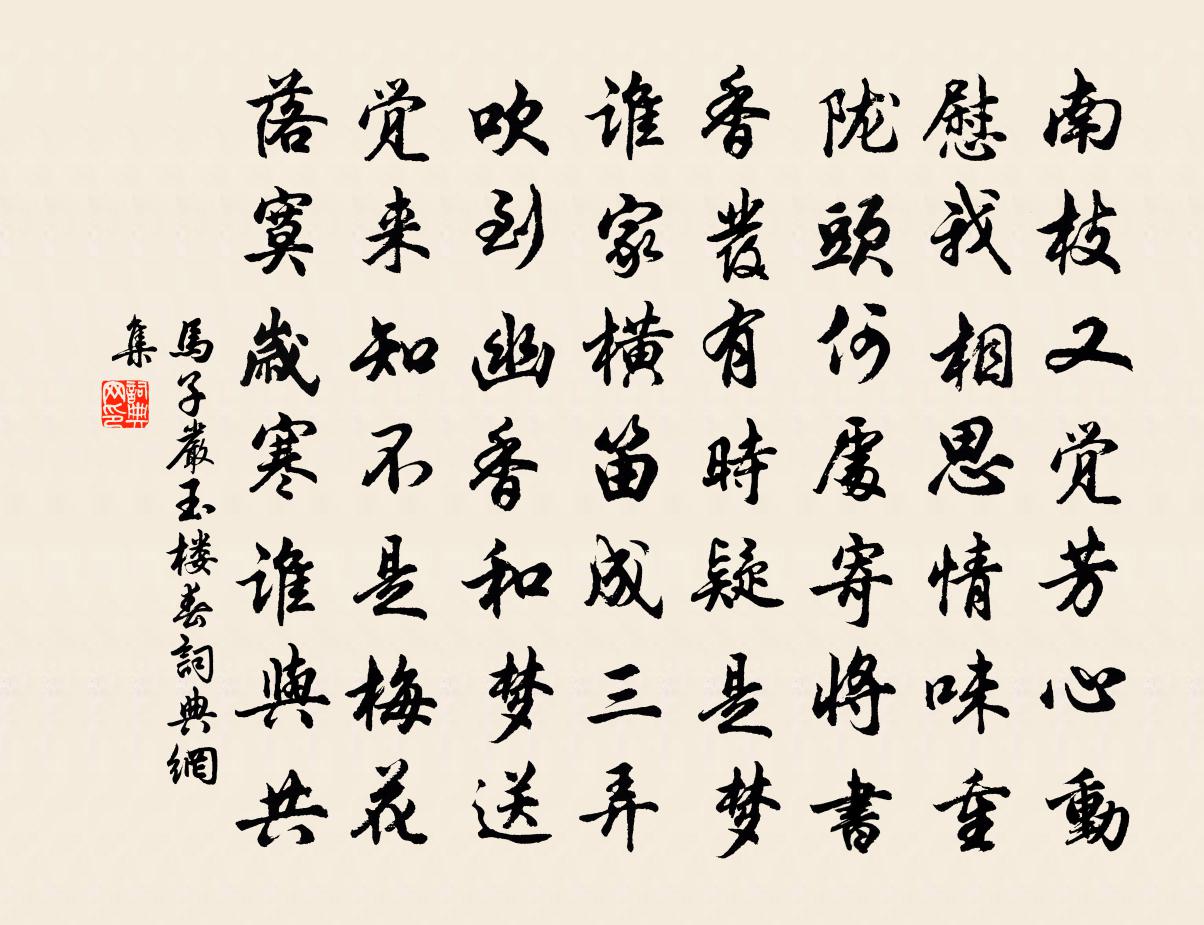 南枝又觉芳心動
慰我相思情味重
陇頭何處寄将書
香發有時疑是梦
谁家横笛成三弄
吹到幽香和梦送
觉来知不是梅花
落寞歲寒谁與共
馬子嚴玉楼春詞典網
集
詞典网印